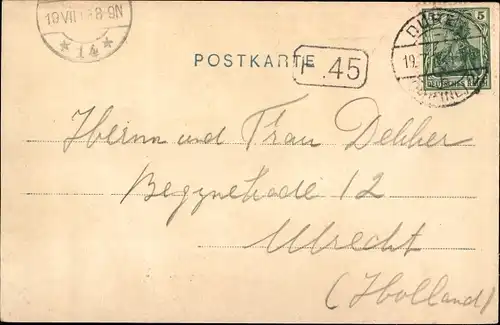 19 VII 8-9N
* 14 *
DÜREN
5
19.7.
(RHEINL.)
POSTKARTE
F. 45
Herrn und Frau Dekker
Begynekade 12
Utrecht
(Holland)